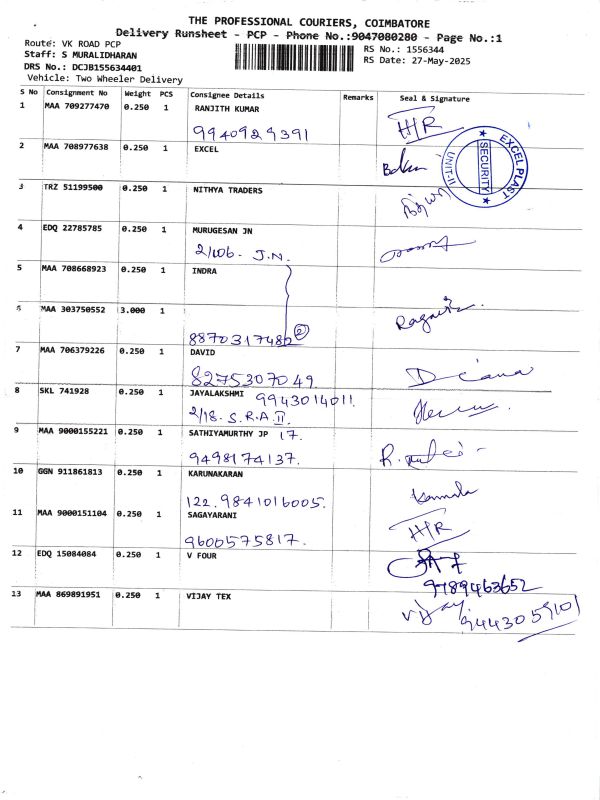 THE PROFESSIONAL COURIERS, COIMBATORE
Delivery Runsheet - PCP - Phone No.:9047080280 - Page No.:1
Route: VK ROAD PCP RS No.: 1556344
Staff: S MURALIDHARAN RS Date: 27-May-2025
DRS No.: DCJB155634401
Vehicle: Two Wheeler Delivery
S No Consignment No Weight PCS Consignee Details Remarks Seal & Signature
1 MAA 709277470 0.250 1 RANJITH KUMAR
9940929391 H/R
2 MAA 708977638 0.250 1 EXCEL
EXCEL PLAST SECURITY UNIT-II
3 TRZ 51199500 0.250 1 NITHYA TRADERS
4 EDQ 22785785 0.250 1 MURUGESAN JN
2/106. J.N.
5 MAA 708668923 0.250 1 INDRA
6 MAA 303750552 3.000 1
8870317482 2
7 MAA 706379226 0.250 1 DAVID
8275307049 Diana
8 SKL 741928 0.250 1 JAYALAKSHMI 9943014011
2/18. S.R.A II
9 MAA 9000155221 0.250 1 SATHIYAMURTHY JP 17.
9498174137.
10 GGN 911861813 0.250 1 KARUNAKARAN
122. 9841016005. Kamala
11 MAA 9000151104 0.250 1 SAGAYARANI
9600575817. H/R
12 EDQ 15084084 0.250 1 V FOUR
9789463652
13 MAA 869891951 0.250 1 VIJAY TEX Vijay
9443059101